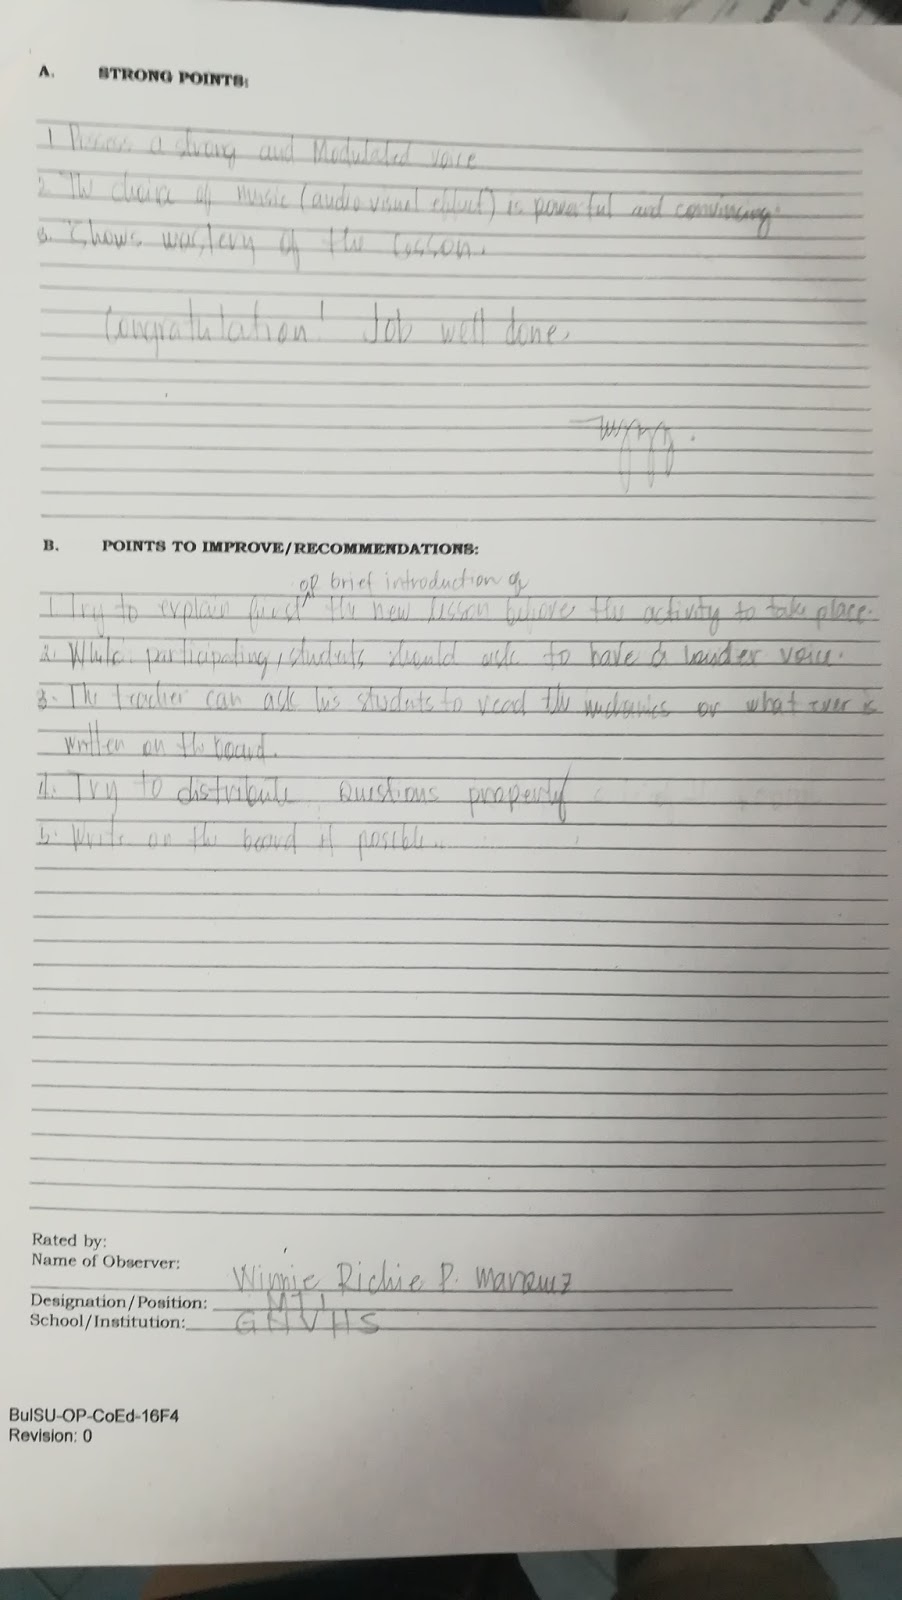 A. STRONG POINTS:
1 Possess a strong and Modulated voice
2. The choice of music (audio visual effect) is powerful and convincing.
3. Shows mastery of the lesson.
Congratulation! Job well done.
B. POINTS TO IMPROVE/RECOMMENDATIONS:
or brief introduction of
1. Try to explain first the new lesson before the activity to take place.
2. While participating, students should ask to have a louder voice.
3. The teacher can ask his students to read the mechanics or what ever is
written on the board.
4. Try to distribute questions properly
5. Write on the board if posible.
Rated by:
Name of Observer: Winnie Richie P. Marquez
Designation/Position: MT I
School/Institution: GNVHS
BulSU-OP-CoEd-16F4
Revision: 0